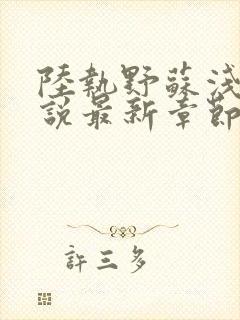 陸執野蘇淺
說最新章節
許三多